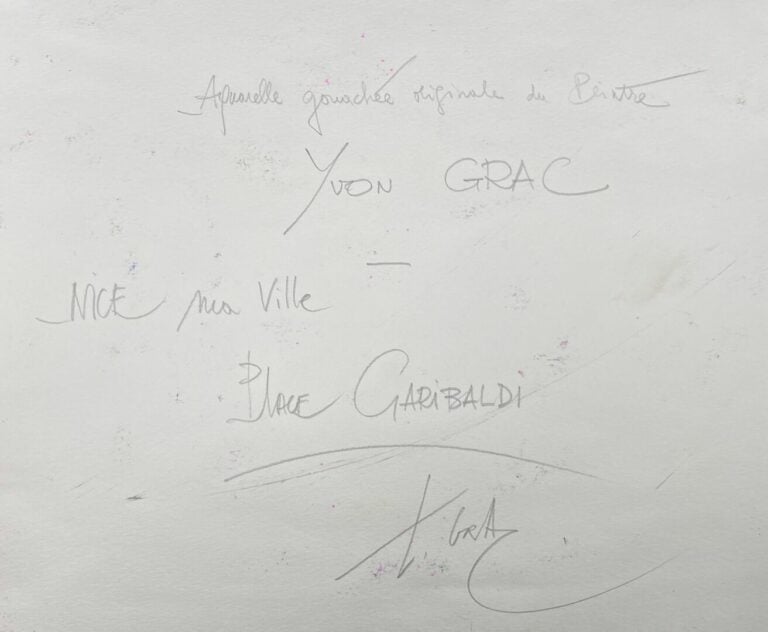 Aquarelle gouachée originale du Peintre
YVON GRAC
—
NICE ma Ville
PLACE GARIBALDI
Y. GRAC